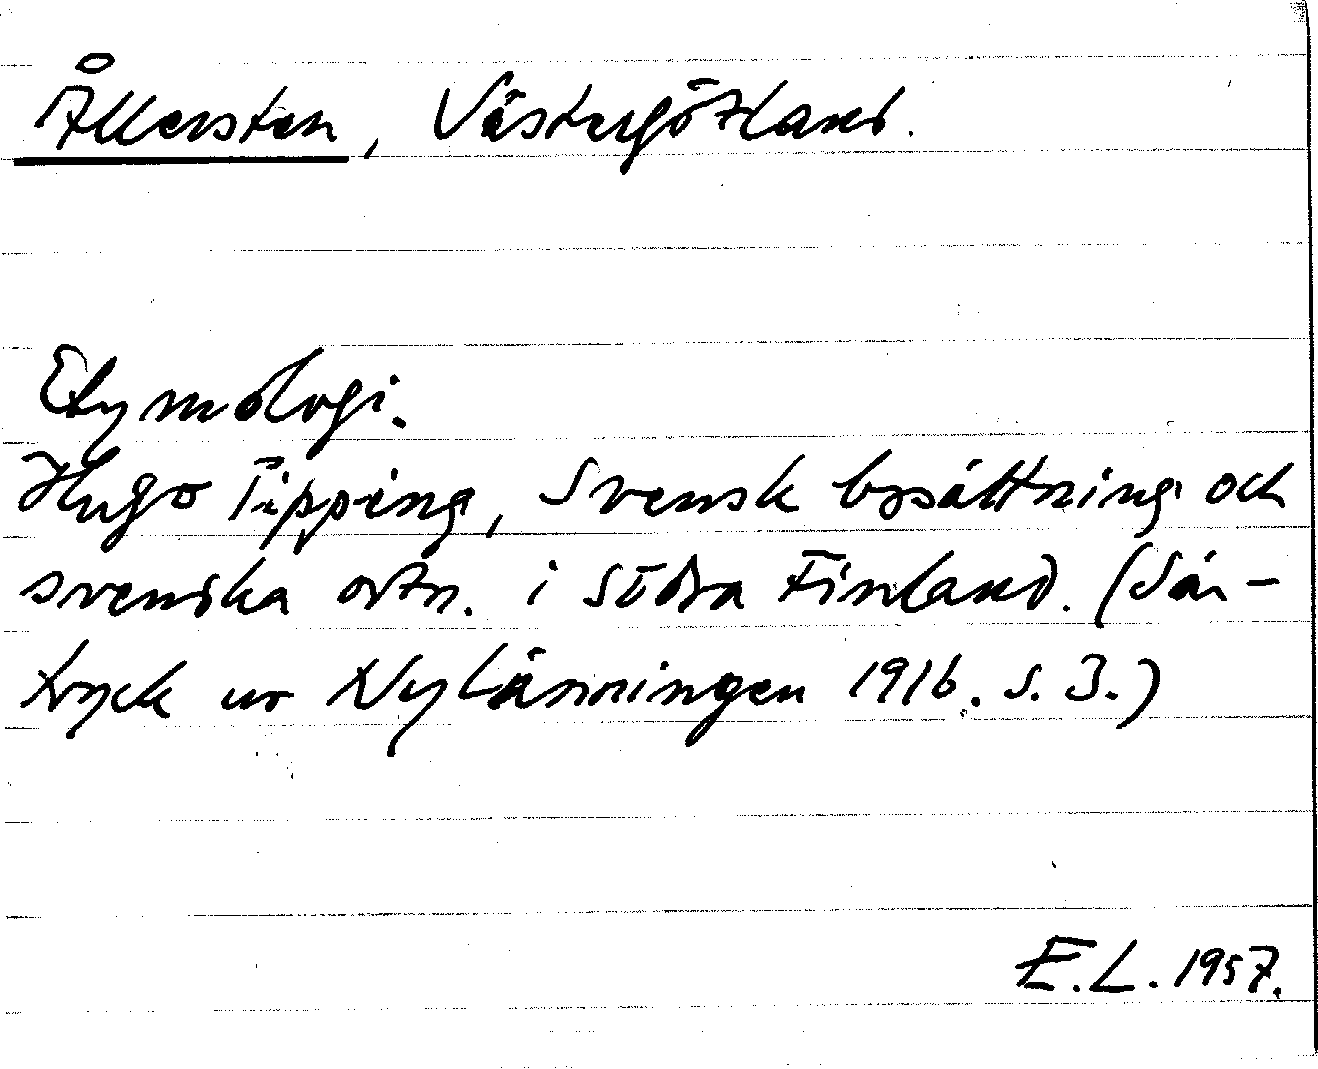 Åkersten, Västergötland.
Etymologi.
Hugo Pipping, Svensk bosättning och
svenska ortn. i södra Finland. (Sär-
tryck ur Nylänningen 1916. s. 3.)
E.L. 1957.